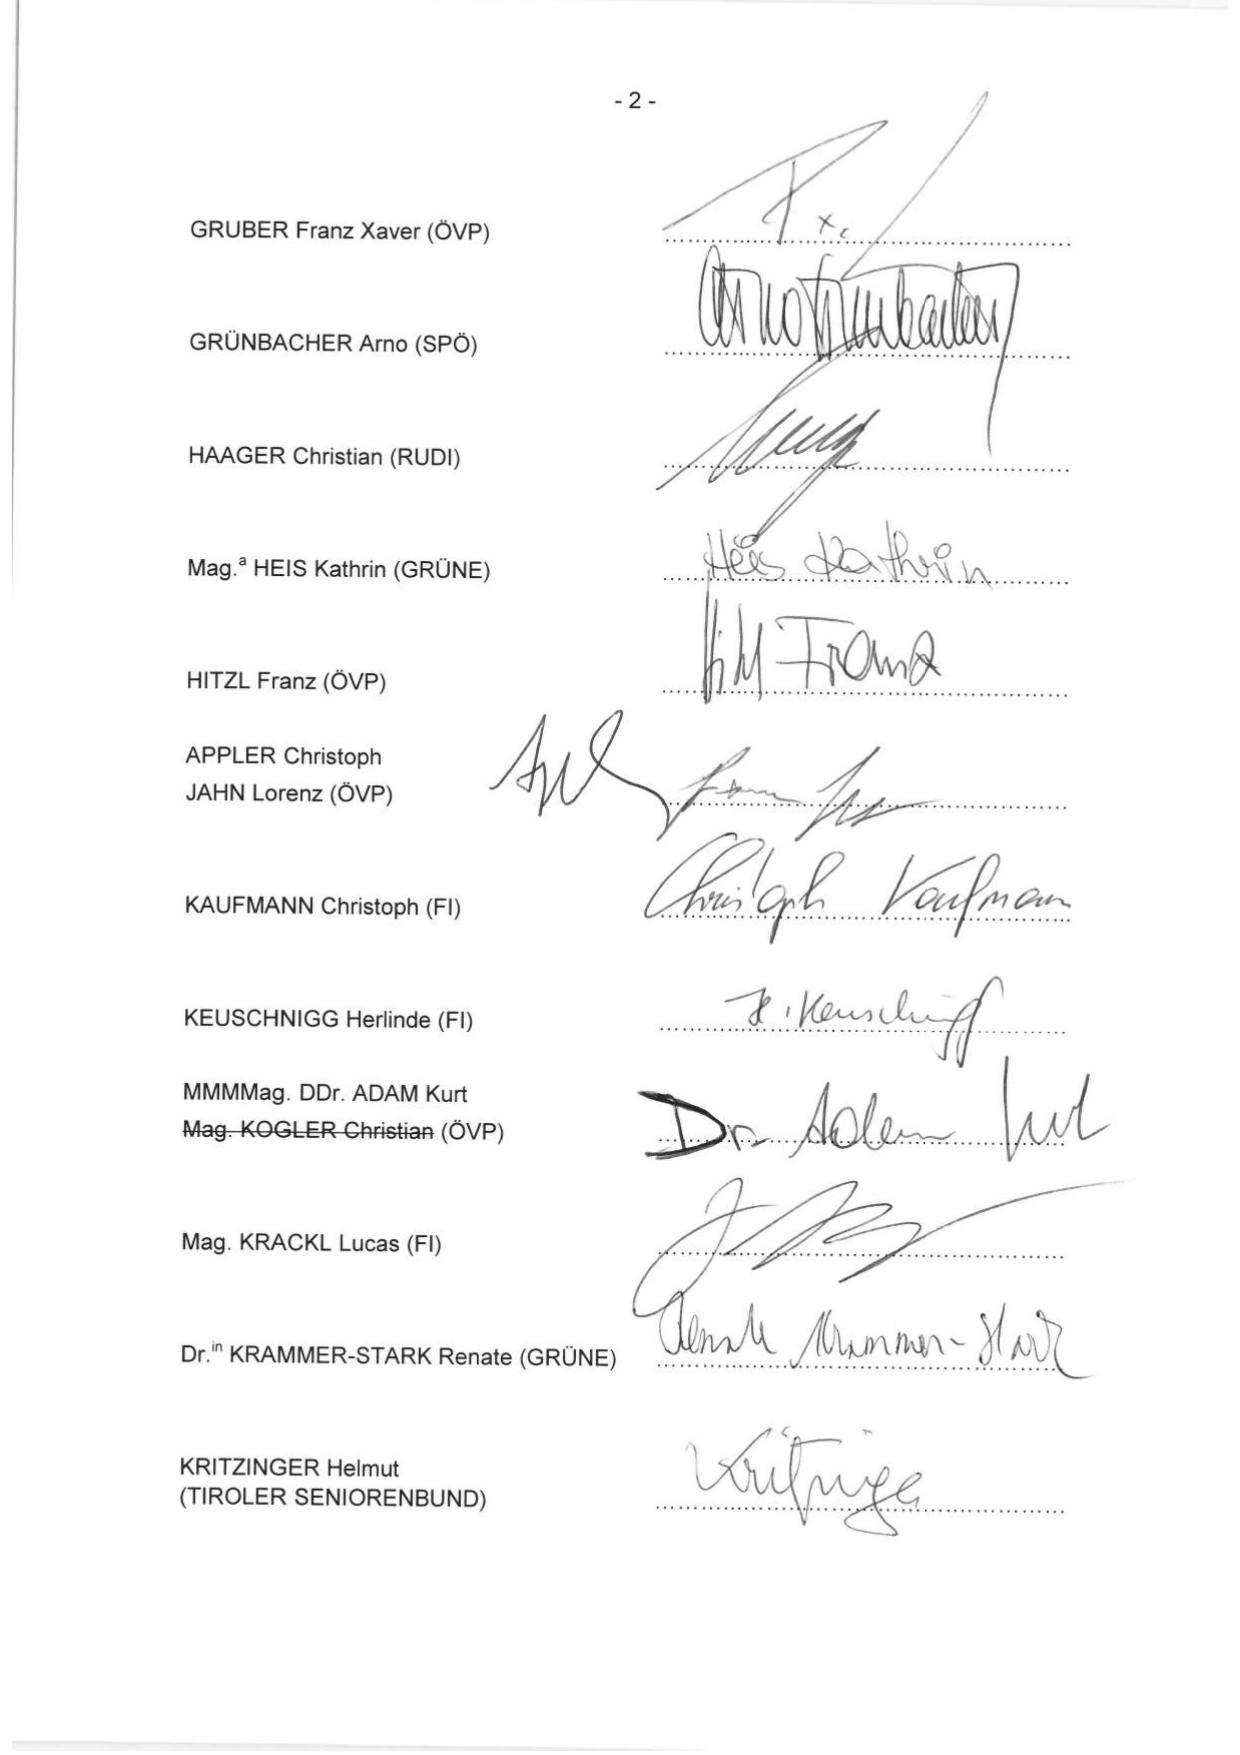 - 2 -
GRUBER Franz Xaver (ÖVP)
GRÜNBACHER Arno (SPÖ) Arno Grünbacher
HAAGER Christian (RUDI)
Mag.ª HEIS Kathrin (GRÜNE) Heis Kathrin
HITZL Franz (ÖVP) Hitzl Franz
APPLER Christoph
JAHN Lorenz (ÖVP)
KAUFMANN Christoph (FI) Christoph Kaufmann
KEUSCHNIGG Herlinde (FI) H. Keuschnigg
MMMMag. DDr. ADAM Kurt
Mag. KOGLER Christian (ÖVP) Dr. Adam Kurt
Mag. KRACKL Lucas (FI)
Dr.ⁱⁿ KRAMMER-STARK Renate (GRÜNE) Renate Krammer-Stark
KRITZINGER Helmut Kritzinger
(TIROLER SENIORENBUND)